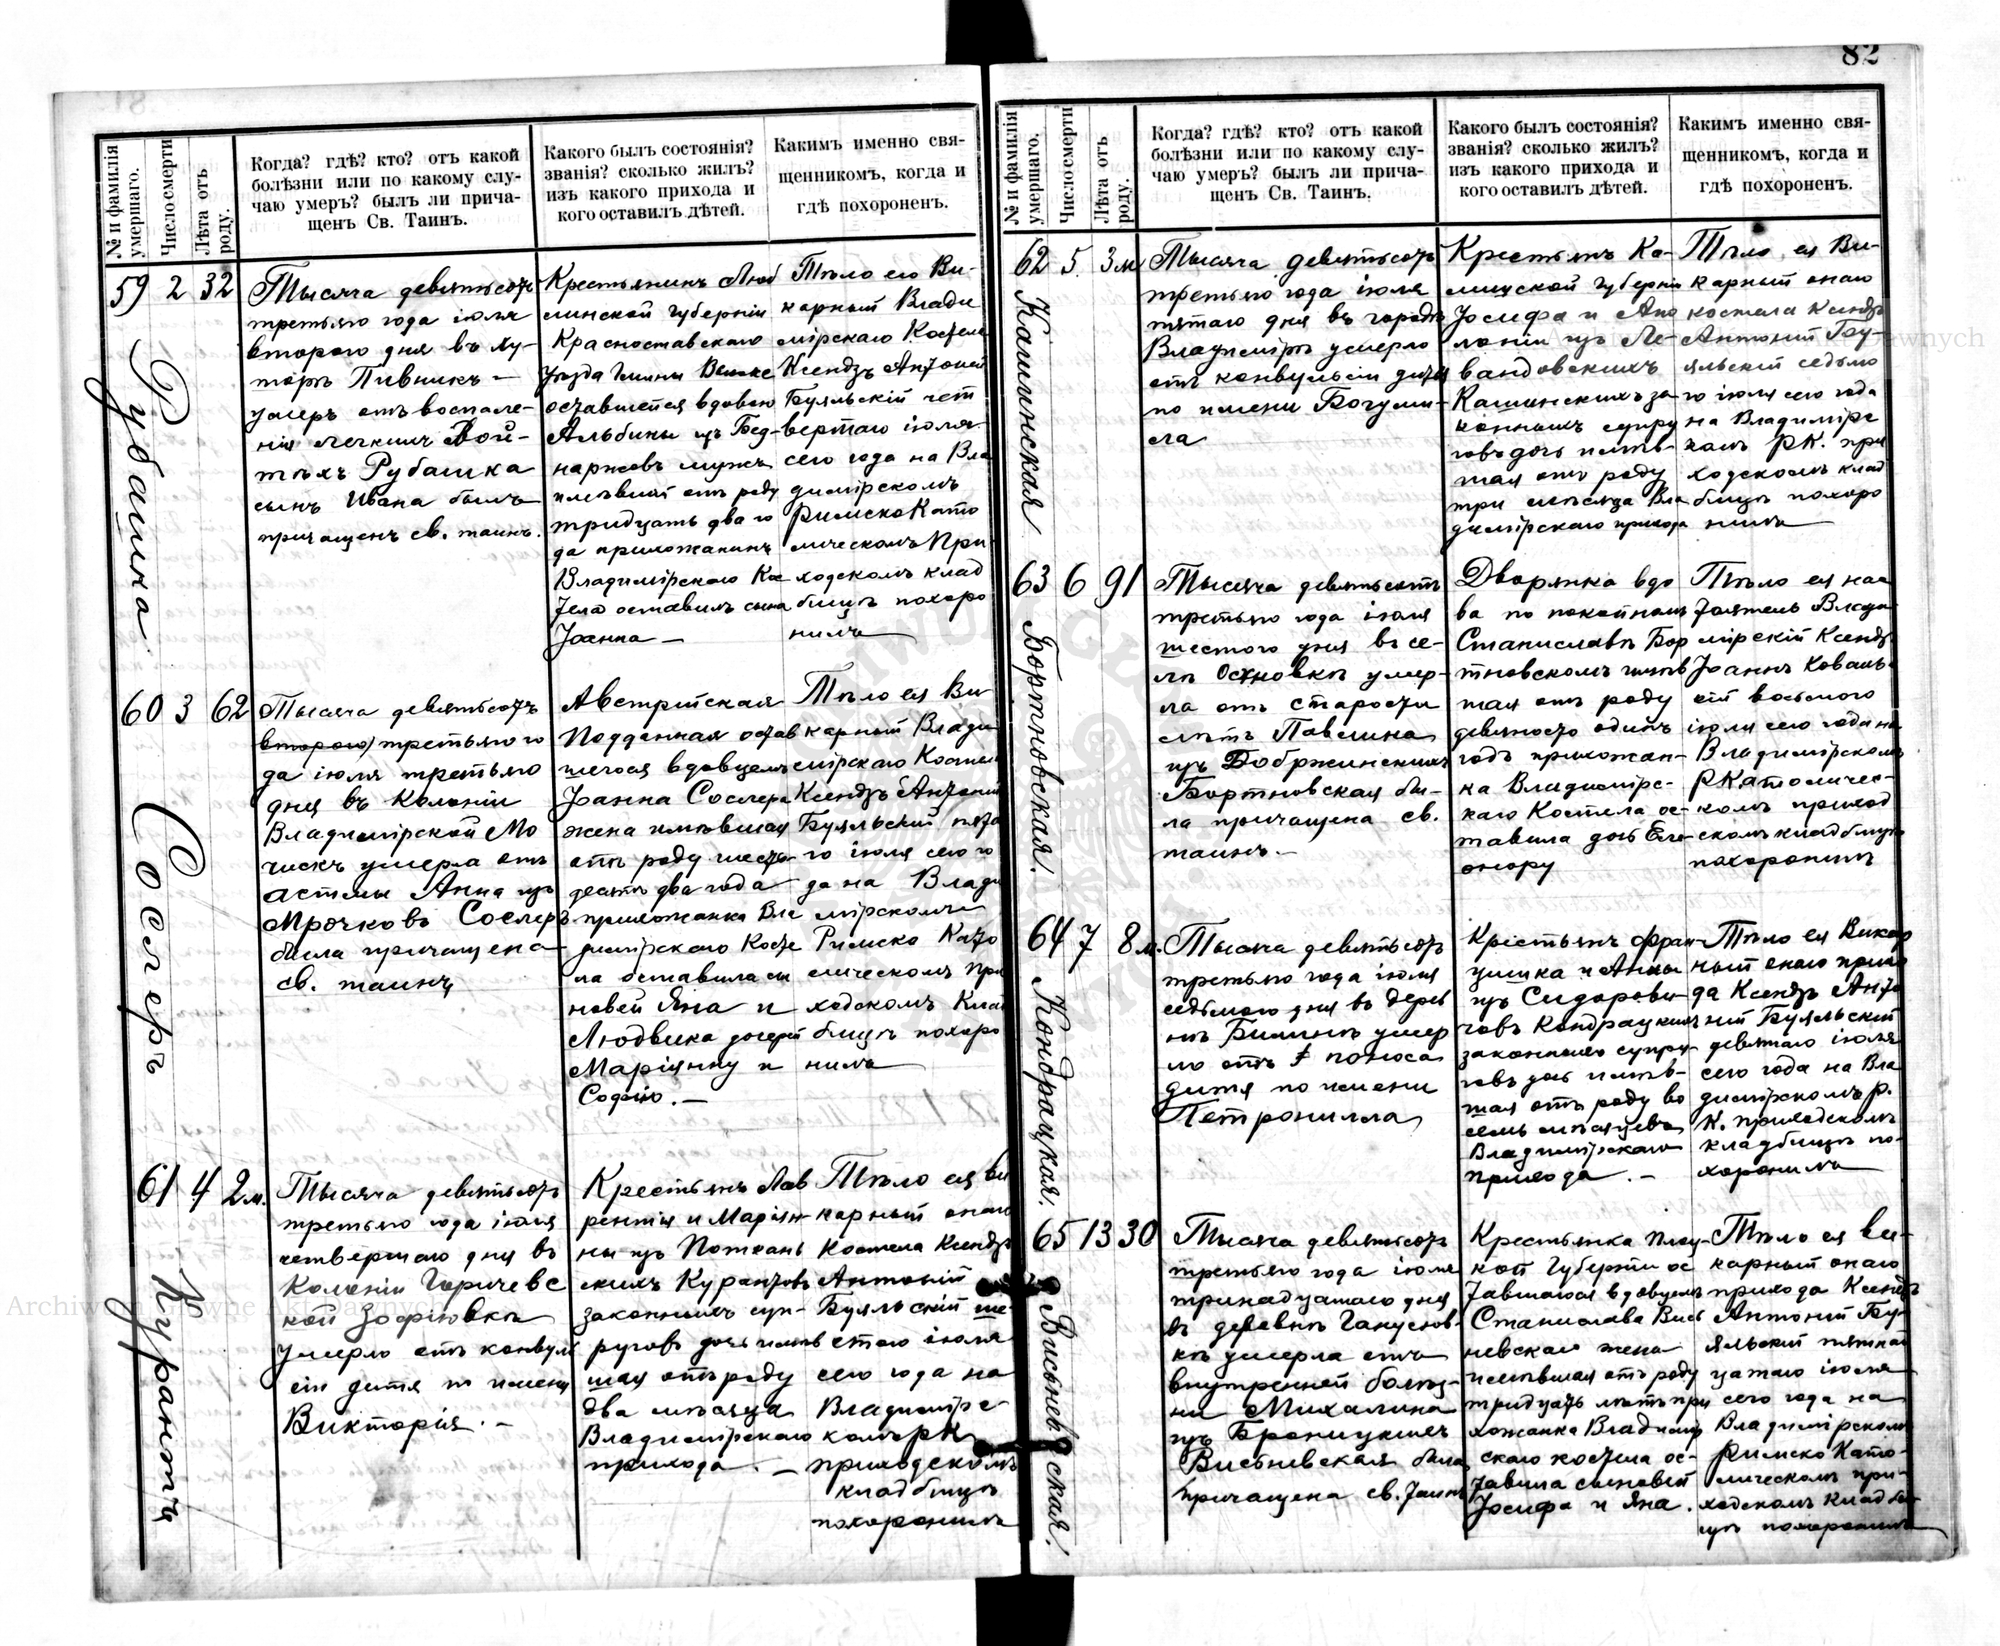 82
№ и фамилія умершаго.
Число смерти
Лѣта отъ роду.
Когда? гдѣ? кто? отъ какой
болѣзни или по какому слу-
чаю умеръ? былъ ли прича-
щенъ Св. Таинъ.
Какого былъ состоянія?
званія? сколько жилъ?
изъ какого прихода и
кого оставилъ дѣтей.
Какимъ именно свя-
щенникомъ, когда и
гдѣ похороненъ.
59 2 32
Рубашка
Тысяча девятьсотъ
третьяго года іюля
второго дня въ ху-
торѣ Пивникъ —
умеръ отъ воспале-
нія легкихъ Вой-
тѣхъ Рубашка
сынъ Ивана былъ
причащенъ св. таинъ.
Крестьянинъ Люб
линской губерніи
Красноставскаго
уѣзда Гмины
оставшейся вдовою
Альбины изъ Бед-
наржовъ мужъ
имѣвшій отъ роду
тридцать два го
да прихожанинъ
Владимірскаго Кос
тела оставилъ сына
Іоанна —
Тѣло его Ви-
карный Влади
мірскаго Костела
Ксендзъ Антоній
Буяльскій чет
вертаго іюля
сего года на Вла
димірскомъ
Римско Като
лическомъ При
ходскомъ клад
бищѣ похоро
нилъ
60 3 62
Сослеръ
Тысяча девятьсотъ
второго) третьяго го
да іюля третьяго
дня въ колоніи
Владимірской Мо
чискъ умерла отъ
астмы Анна изъ
Мрочковъ Сослеръ
была причащена
св. таинъ
Австрійская
Подданная остав
шегося вдовцемъ
Іоанна Сослера
жена имѣвшая
отъ роду шесть-
десятъ два года
прихожанка Вла
димірскаго Косте
ла оставила сы
новей Яна и
Людвика дочерей
Маріянну и
Софію. —
Тѣло ея Ви
карный Влади
мірскаго Костела
Ксендзъ Антоній
Буяльскій пята
го іюля сего го
да на Влади
мірскомъ
Римско Като
лическомъ При
ходскомъ Клад
бищѣ похоро
нилъ
61 4 2 м.
Курантъ
Тысяча девятьсотъ
третьяго года іюля
четвертаго дня въ
Колоніи Горичевс
кой Зофіювкѣ
умерло отъ конвуль
сіи дитя по имени
Викторія. —
Крестьянъ Лав
рентія и Маріян-
ны изъ
скихъ Курантовъ
законныхъ суп-
руговъ дочь имѣв
шая отъ роду
два мѣсяца
Владимірскаго
прихода. —
Тѣло ея ви
карный онаго
костела Ксендзъ
Антоній
Буяльскій ше-
стого іюля
сего года на
Владимірс-
комъ РК
приходскомъ
кладбищѣ
похоронилъ
№ и фамилія умершаго.
Число смерти
Лѣта отъ роду.
Когда? гдѣ? кто? отъ какой
болѣзни или по какому слу-
чаю умеръ? былъ ли прича-
щенъ Св. Таинъ.
Какого былъ состоянія?
званія? сколько жилъ?
изъ какого прихода и
кого оставилъ дѣтей.
Какимъ именно свя-
щенникомъ, когда и
гдѣ похороненъ.
62 5 3 м
Кашинская
Тысяча девятьсотъ
третьяго года іюля
пятаго дня въ городѣ
Владимірѣ умерло
отъ конвульсіи дитя
по имени Богуми-
ла
Крестьянъ Ка-
лишской губерніи
Іосифа и Апо
лоніи изъ Ле-
вандовскихъ
Кашинскихъ за-
конныхъ супру
говъ дочь имѣв-
шая отъ роду
три мѣсяца Вла
димірскаго прихода
Тѣло ея Ви-
карный онаго
костела Ксендзъ
Антоній Бу-
яльскій седьмо
го іюля сего года
на Владимірс
комъ РК. при
ходскомъ клад
бищѣ похоро
нилъ
63 6 91
Бортновская!
Тысяча девятьсотъ
третьяго года іюля
шестого дня въ се-
лѣ Островкѣ умер-
ла отъ старости
лѣтъ Павлина
изъ Добржинскихъ
Бортновская бы-
ла причащена св.
таинъ. —
Дворянка вдо
ва по покойномъ
Станиславѣ Бор
тновскомъ имѣв
шая отъ роду
девяносто одинъ
годъ прихожан-
ка Владимірс-
каго Костела ос-
тавила дочь Еле
онору
Тѣло ея нас
тоятель Влади
мірскій Ксендзъ
Іоаннъ Коваль-
скій восьмого
іюля сего года на
Владимірскомъ
РКатоличес-
комъ приход
скомъ кладбищѣ
похоронилъ
64 7 8 м.
Кондрацкая!
Тысяча девятьсотъ
третьяго года іюля
седьмого дня въ дерев
нѣ Билинѣ умер
ло отъ поноса
дитя по имени
Петронилла
Крестьянъ Фран-
цишка и Анны
изъ Сидорови-
човъ Кондрацкихъ
законныхъ супру-
говъ дочь имѣв-
шая отъ роду во
семь мѣсяцевъ
Владимірскаго
прихода. —
Тѣло ея Викар
ный онаго прихо
да Ксендзъ Анто
ній Буяльскій
девятаго іюля
сего года на Вла
димірскомъ р.
К. приходскомъ
кладбищѣ по-
хоронилъ
65 13 30
Висьневская!
Тысяча девятьсотъ
третьяго года іюля
тринадцатаго дня
въ деревнѣ Ганусов-
кѣ умерла отъ
внутренней болѣз-
ни Михалина
изъ Броницкихъ
Висьневская была
причащена св. таинъ
Крестьянка Плоц-
кой Губерніи ос
тавшагося вдовцемъ
Станислава Вись
невскаго жена
имѣвшая отъ роду
тридцать лѣтъ при
хожанка Владимір
скаго костела ос-
тавила сыновей
Іосифа и Яна.
Тѣло ея ви-
карный онаго
прихода Ксендзъ
Антоній Бу-
яльскій пятнад
цатаго іюля
сего года на
Владимірскомъ
Римско Като-
лическомъ при-
ходскомъ кладби-
щѣ похоронилъ
Archiwum Główne Akt Dawnych